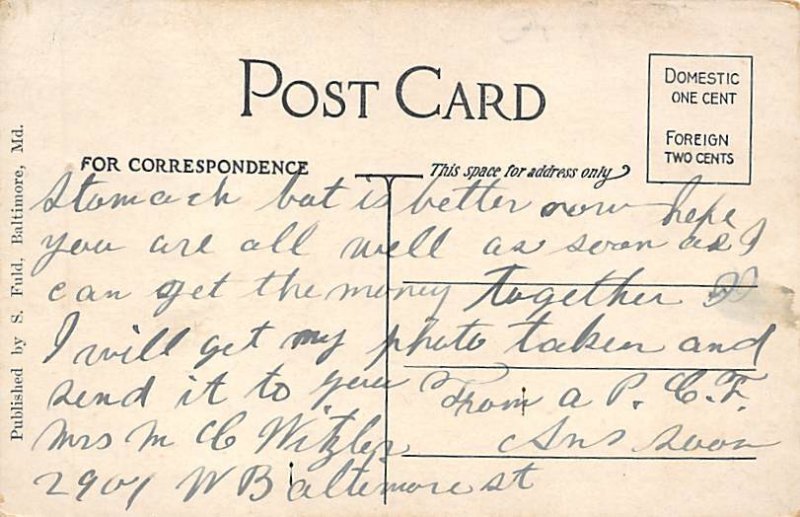 POST CARD
DOMESTIC
ONE CENT
FOREIGN
TWO CENTS
FOR CORRESPONDENCE
This space for address only
Published by S. Fuld, Baltimore, Md.
Stomach but is better now hope
you are all well as soon as I
can get the money together
I will get my photo taken and
send it to you From a P. C. F.
Mrs M C Witzler Ans soon
2901 W Baltimore st